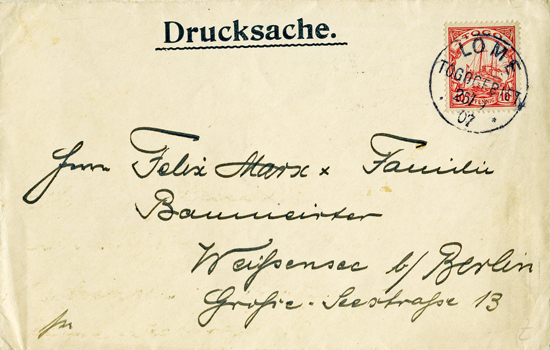 Drucksache.
TOGO
LOME
TOGOGEBIET
07
Herrn Felix Marx x Familie
Baumeister
Weißensee b/ Berlin
Große-Seestraße 13